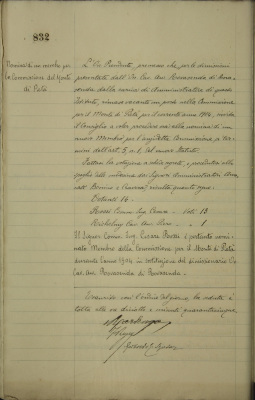 832
Nomina di un membro per
la Commissione del Monte
di Pietà
Il Sig. Presidente, premesso che per le dimissioni
presentate dall' Ill. Cav. Avv.
dalla carica di Amministratore di questo
Istituto, rimase vacante un posto nella Commissione
per il Monte di Pietà, per il corrente anno 1904, invita
il Consiglio a voler procedere alla nomina di un
nuovo Membro per l'anzidetta Commissione, a termini
dell'art. 5 del nuovo Statuto.
Fattasi la votazione a schede segrete, e proceduto allo
spoglio delle medesime dai Signori Amministratori
Bruno e risultò quanto segue:
Votanti 14 -
Rossi Comm. Ing. Cesare - Voti 13
Cav. Avv. - " 1
Il Signor Comm. Ing. Cesare Rossi è pertanto nominato
Membro della Commissione per il Monte di Pietà
durante l'anno 1904 in sostituzione del dimissionario Sig.
Cav. Avv.
Esaurito così l'ordine del giorno, la seduta è
tolta alle ore diciotto e minuti quarantacinque.